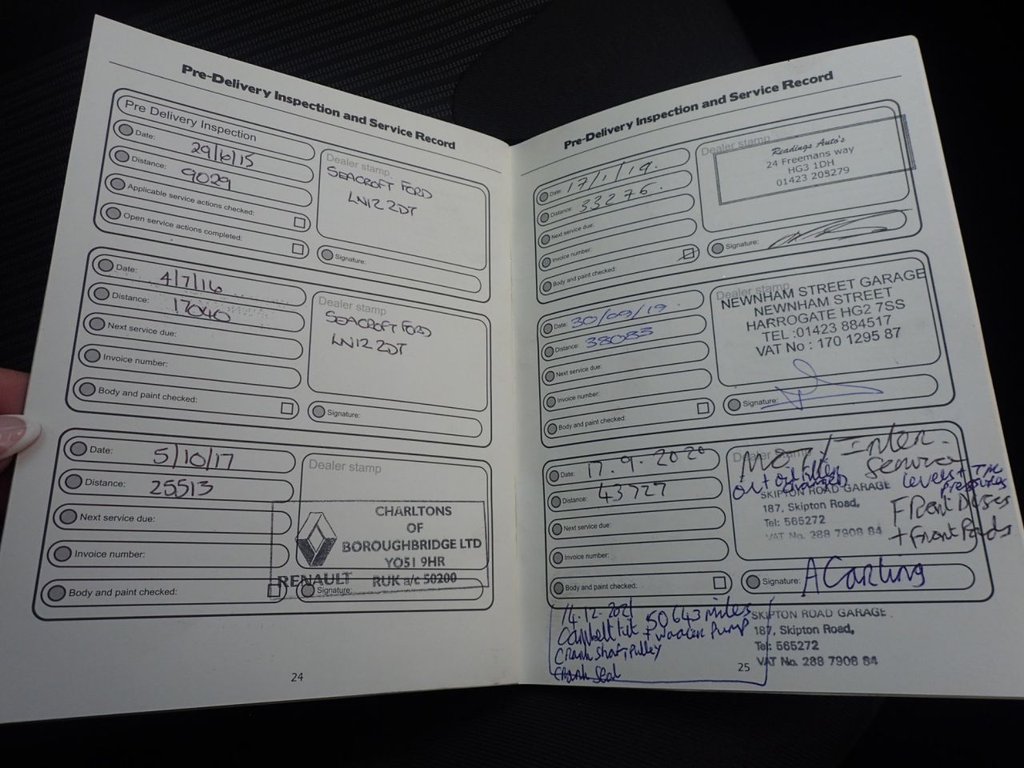 Pre-Delivery Inspection and Service Record
Pre Delivery Inspection
Date: 29/6/15
Distance: 9029
Applicable service actions checked:
Open service actions completed:
Dealer stamp
SEACROFT FORD
LN12 2DT
Signature:
Date: 4/7/16
Distance: 17040
Next service due:
Invoice number:
Body and paint checked:
Dealer stamp
SEACROFT FORD
LN12 2DT
Signature:
Date: 5/10/17
Distance: 25513
Next service due:
Invoice number:
Body and paint checked:
Dealer stamp
CHARLTONS
OF
BOROUGHBRIDGE LTD
YO51 9HR
RENAULT RUK a/c 50200
Signature:
24
Pre-Delivery Inspection and Service Record
Date: 17/1/19.
Distance: 33276.
Next service due:
Invoice number:
Body and paint checked:
Dealer stamp
Readings Auto's
24 Freemans way
HG3 1DH
01423 208279
Signature:
Date: 30/09/19.
Distance: 38085
Next service due:
Invoice number:
Body and paint checked:
Dealer stamp
NEWNHAM STREET GARAGE
NEWNHAM STREET
HARROGATE HG2 7SS
TEL :01423 884517
VAT No : 170 1295 87
Signature:
Date: 17.9.2020
Distance: 43727
Next service due:
Invoice number:
Body and paint checked:
Dealer stamp
MOT/Inter.
Service
levels +
pressures
SKIPTON ROAD GARAGE
187, Skipton Road,
Tel: 565272
VAT No. 288 7908 84
Front Discs
+ Front Pads
Signature: A Carling
14.12.2021 50643 miles
Cambelt kit + Waater Pump
Crank shaft, pulley
Crank Seal
SKIPTON ROAD GARAGE
187, Skipton Road,
Tel: 565272
VAT No. 288 7908 84
25